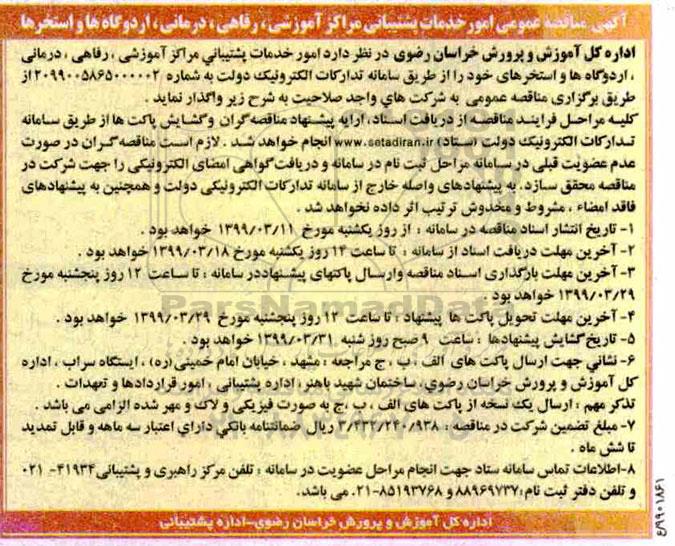 آگهی مناقصه عمومی امور خدمات پشتیبانی مراکز آموزشی، رفاهی، درمانی، اردوگاه ها و استخرها
اداره کل آموزش و پرورش خراسان رضوی در نظر دارد امور خدمات پشتیبانی مراکز آموزشی، رفاهی، درمانی
، اردوگاه ها و استخرهای خود را از طریق سامانه تدارکات الکترونیک دولت به شماره ۲۰۹۹۰۰۵۸۶۵۰۰۰۰۰۲ از
طریق برگزاری مناقصه عمومی به شرکت های واجد صلاحیت به شرح زیر واگذار نماید .
کلیه مراحل فرایند مناقصه از دریافت اسناد، ارایه پیشنهاد مناقصه گران وگشایش پاکت ها از طریق سامانه
تدارکات الکترونیک دولت (ستاد) www.setadiran.ir انجام خواهد شد . لازم است مناقصه گران در صورت
عدم عضویت قبلی در سامانه مراحل ثبت نام در سامانه و دریافت گواهی امضای الکترونیکی را جهت شرکت در
مناقصه محقق سازد. به پیشنهادهای واصله خارج از سامانه تدارکات الکترونیکی دولت و همچنین به پیشنهادهای
فاقد امضاء ، مشروط و مخدوش ترتیب اثر داده نخواهد شد .
۱- تاریخ انتشار اسناد مناقصه در سامانه : از روز یکشنبه مورخ ۱۳۹۹/۰۳/۱۱ خواهد بود .
۲- آخرین مهلت دریافت اسناد از سامانه : تا ساعت ۱۴ روز یکشنبه مورخ ۱۳۹۹/۰۳/۱۸ خواهد بود .
۳- آخرین مهلت بارگذاری اسناد مناقصه وارسال پاکتهای پیشنهاددر سامانه : تا ساعت ۱۲ روز پنجشنبه مورخ
۱۳۹۹/۰۳/۲۹ خواهد بود .
۴- آخرین مهلت تحویل پاکت ها پیشنهاد : تا ساعت ۱۲ روز پنجشنبه مورخ ۱۳۹۹/۰۳/۲۹ خواهد بود .
۵- تاریخ گشایش پیشنهادها : ساعت ۹ صبح روز شنبه ۱۳۹۹/۰۳/۳۱ خواهد بود .
۶- نشانی جهت ارسال پاکت های الف ، ب ، ج مراجعه : مشهد ، خیابان امام خمینی(ره) ، ایستگاه سراب ، اداره
کل آموزش و پرورش خراسان رضوی، ساختمان شهید باهنر، اداره پشتیبانی ، امور قراردادها و تعهدات .
تذکر مهم : ارسال یک نسخه از پاکت های الف ، ب ،ج به صورت فیزیکی و لاک و مهر شده الزامی می باشد .
۷- مبلغ تضمین شرکت در مناقصه : ۳/۴۳۲/۲۴۰/۹۳۸ ریال ضمانتنامه بانکی دارای اعتبار سه ماهه و قابل تمدید
تا شش ماه .
۸-اطلاعات تماس سامانه ستاد جهت انجام مراحل عضویت در سامانه : تلفن مرکز راهبری و پشتیبانی۴۱۹۳۴- ۰۲۱
و تلفن دفتر ثبت نام :۸۸۹۶۹۷۳۷ و ۸۵۱۹۳۷۶۸-۰۲۱ می باشد.
اداره کل آموزش و پرورش خراسان رضوی-اداره پشتیبانی
ParsNamadData